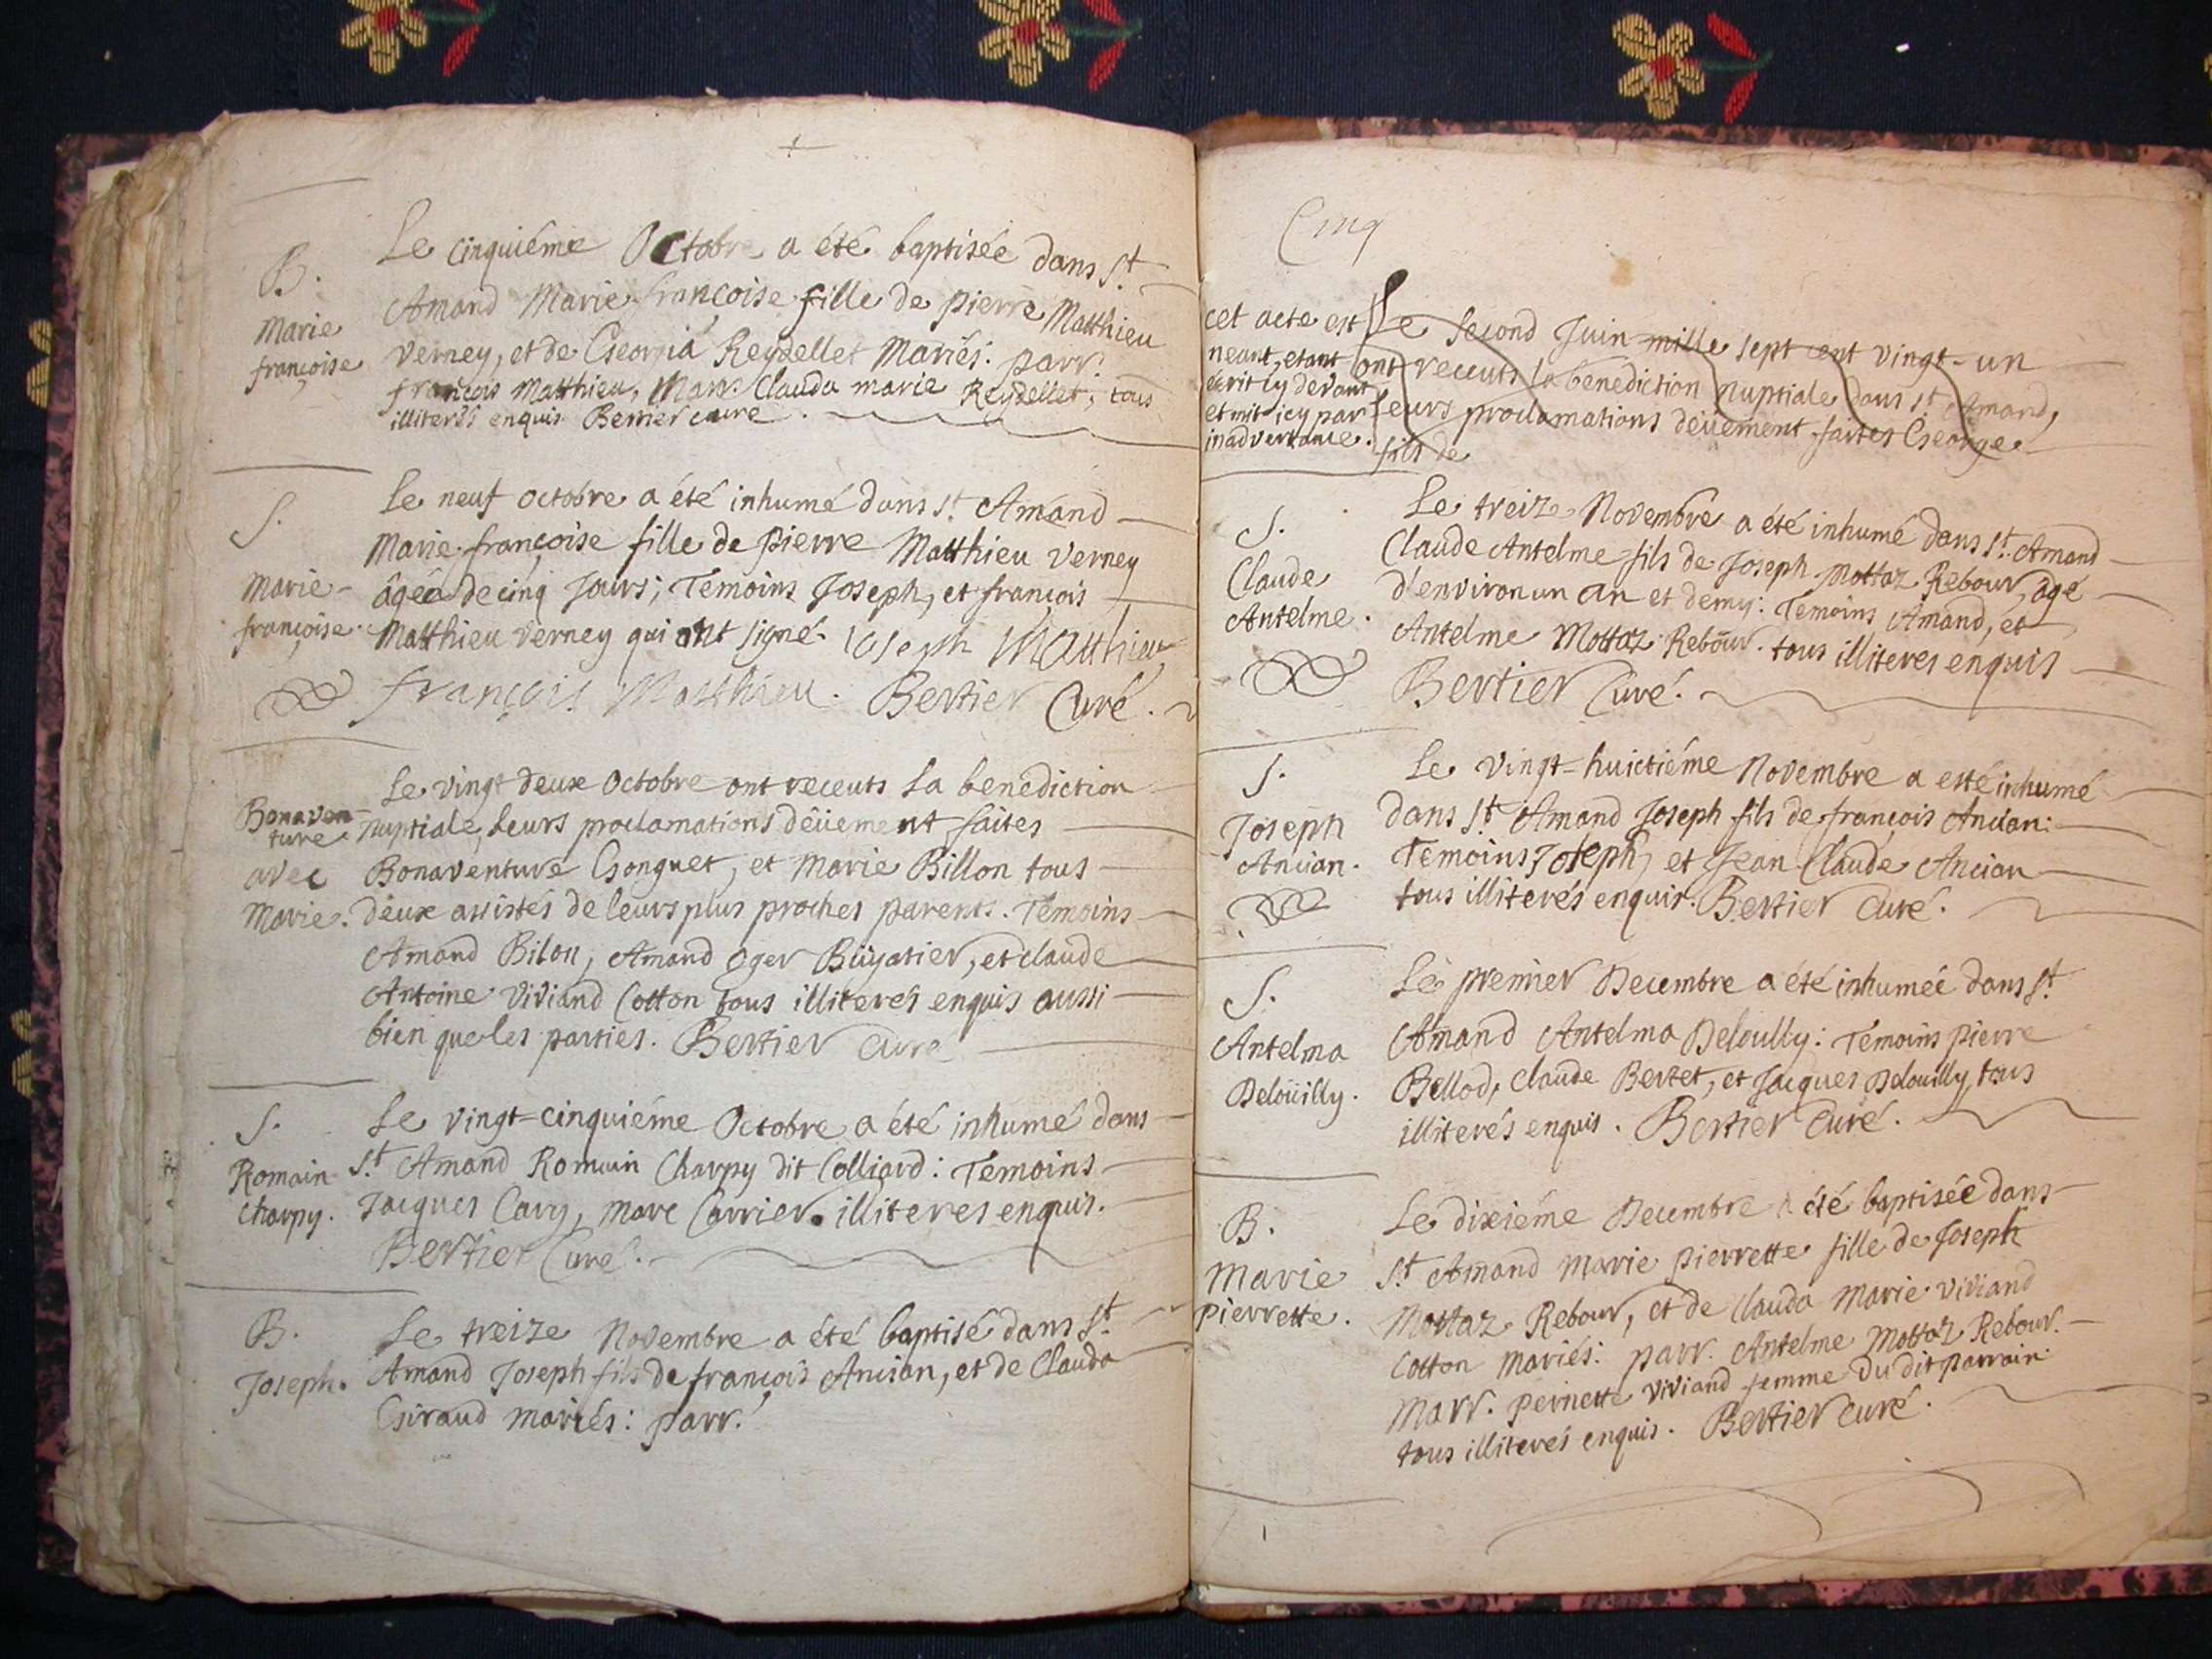 B.
Marie
françoise
Le cinquiéme Octobre a été baptisée dans St
Amand Marie françoise fille de pierre Matthieu
verney, et de Georgia Reydellet Mariés: parr.
françois Matthieu, Marr. Clauda marie Reydellet, tous
illiterés enquis Bertier curé.
S.
Marie-
françoise.
Le neuf octobre a été inhumé dans St. Amand
Marie françoise fille de pierre Matthieu verney
âgée de cinq Jours; Temoins Joseph, et françois
Matthieu verney qui ont signé. Joseph Matthieu
françois Matthieu. Bertier Curé.
Bonaven-
ture
avec
Marie.
Le vingt deux Octobre ont receuts la benediction
nuptiale, leurs proclamations dëüement faites
Bonaventure Gonguet, et Marie Billon tous
deux assistés de leurs plus proches parents. Temoins
Amand Bilon, Amand Oger Bügatier, et claude
Antoine Viviand Cotton tous illiterés enquis aussi
bien que les parties. Bertier Curé
S.
Romain
Charpy.
Le vingt=cinquiéme Octobre a été inhumé dans
St Amand Romain Charpy dit Colliard: Temoins
Jacques Cary, Marc Carrier. illiteres enquis.
Bertier Curé.
B.
Joseph.
Le treize Novembre a été baptisé dans St.
Amand Joseph fils de françois Ancian, et de Clauda
Giraud mariés: parr.
Cinq
cet acte est
neant, etant
écrit cy devant
et mit icy par
inadvertance.
Le second Juin mille sept cent vingt-un
ont receuts la benediction nuptiale dans St Amand,
leurs proclamations dëüement faites George
fils de
S.
Claude
Antelme.
Le treize Novembre a été inhumé dans St. Amand
Claude Antelme fils de Joseph Mottaz Rebour, âgé
d'environ un an et demy: Temoins Amand, et
Antelme Mottaz Rebour. tous illiteres enquis
Bertier Curé.
S.
Joseph
Ancian.
Le vingt=huictiéme Novembre a esté inhumé
dans St Amand Joseph fils de françois Ancian:
Temoins Joseph, et Jean Claude Ancian
tous illiterés enquis. Bertier Curé.
S.
Antelma
Deloüilly.
Le premier Decembre a été inhumée dans St.
Amand Antelma Deloully: Temoins pierre
Bellod, Claude Bertet, et Jacques Delouilly, tous
illiterés enquis. Bertier Curé.
B.
Marie
pierrette.
Le dixiéme Decembre a été baptisée dans
St Amand Marie pierrette fille de Joseph
Mottaz Rebour, et de Clauda Marie Viviand
Cotton mariés: parr. Antelme Mottaz Rebour.
Marr. pernette Viviand femme du dit parrain.
tous illiterés enquis. Bertier curé.